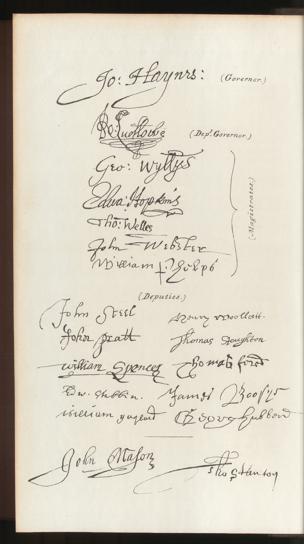 Jo: Haynes: (Governor.)
Ro: Ludlowe (Dep. Governor.)
Geo: Wyllys
Edwa: Hopkins
Tho: Welles
John Webster
William Phelps
(Magistrates.)
(Deputies.)
John Steel
John Pratt
william Spencer
Edw. Stebbin.
William
Henry Wollcott.
Thomas
Thomas Ford
James Boosy
George Hubberd
John Mason
Tho Stanton